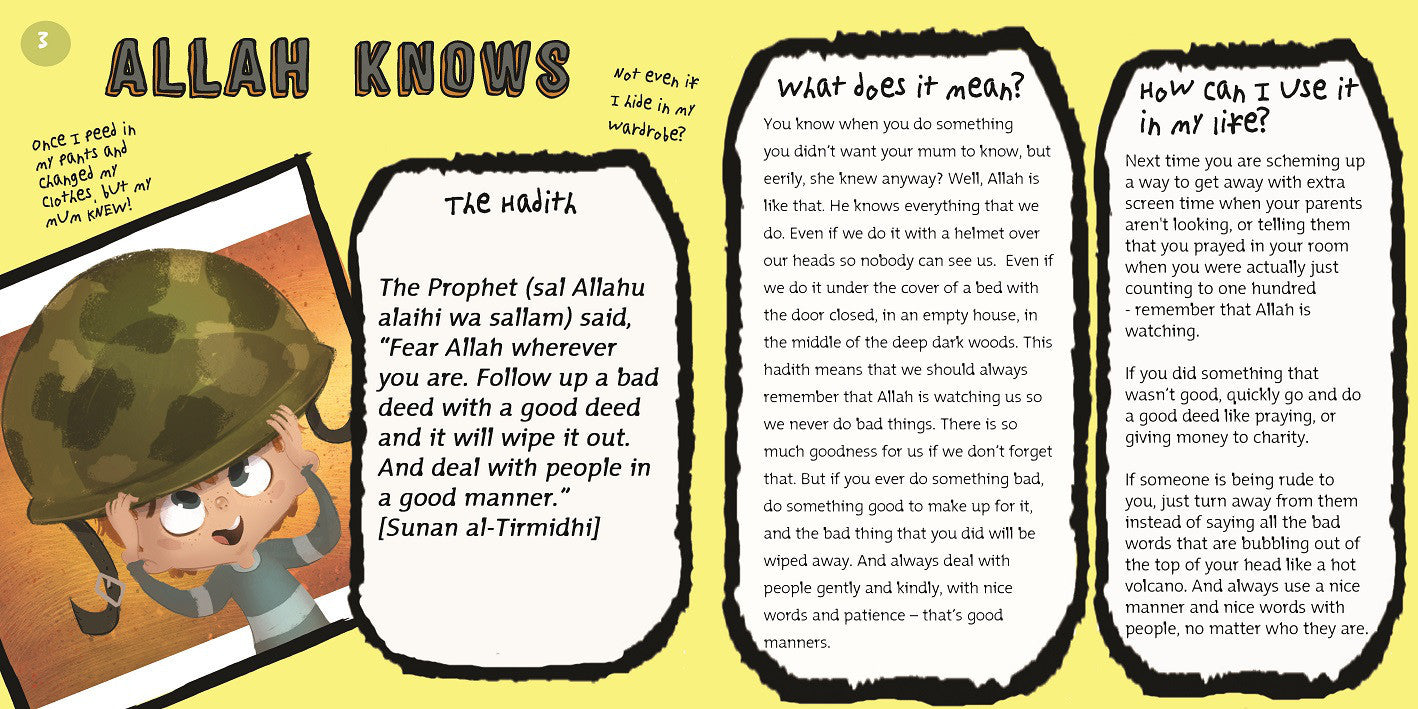 3
ALLAH KNOWS
Not even if
I hide in my
wardrobe?
Once I peed in
my pants and
changed my
clothes, but my
mum KNEW!
The Hadith
The Prophet (sal Allahu
alaihi wa sallam) said,
“Fear Allah wherever
you are. Follow up a bad
deed with a good deed
and it will wipe it out.
And deal with people in
a good manner.”
[Sunan al-Tirmidhi]
What does it mean?
You know when you do something
you didn’t want your mum to know, but
eerily, she knew anyway? Well, Allah is
like that. He knows everything that we
do. Even if we do it with a helmet over
our heads so nobody can see us.  Even if
we do it under the cover of a bed with
the door closed, in an empty house, in
the middle of the deep dark woods. This
hadith means that we should always
remember that Allah is watching us so
we never do bad things. There is so
much goodness for us if we don’t forget
that. But if you ever do something bad,
do something good to make up for it,
and the bad thing that you did will be
wiped away. And always deal with
people gently and kindly, with nice
words and patience – that’s good
manners.
How can I use it
in my life?
Next time you are scheming up
a way to get away with extra
screen time when your parents
aren't looking, or telling them
that you prayed in your room
when you were actually just
counting to one hundred
- remember that Allah is
watching.
If you did something that
wasn’t good, quickly go and do
a good deed like praying, or
giving money to charity.
If someone is being rude to
you, just turn away from them
instead of saying all the bad
words that are bubbling out of
the top of your head like a hot
volcano. And always use a nice
manner and nice words with
people, no matter who they are.